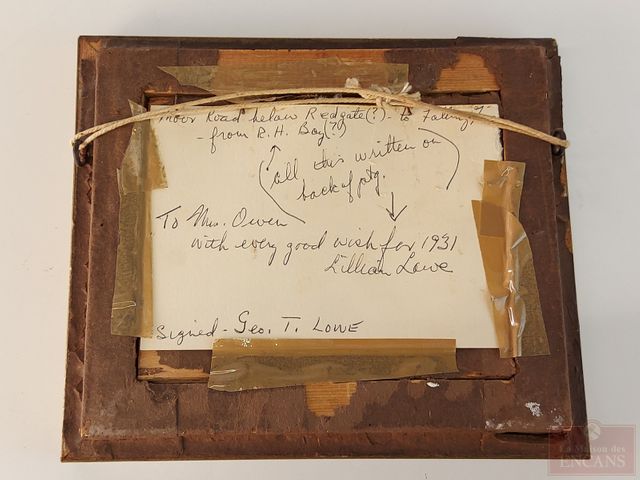 Moor Road below Redgate(?) - to
- from R. H. Bay(?)
all this written on
back of ptg.
To Mrs. Owen
with every good wish for 1931
Lillian Lowe
Signed - Geo. T. Lowe
La Maison des
ENCANS